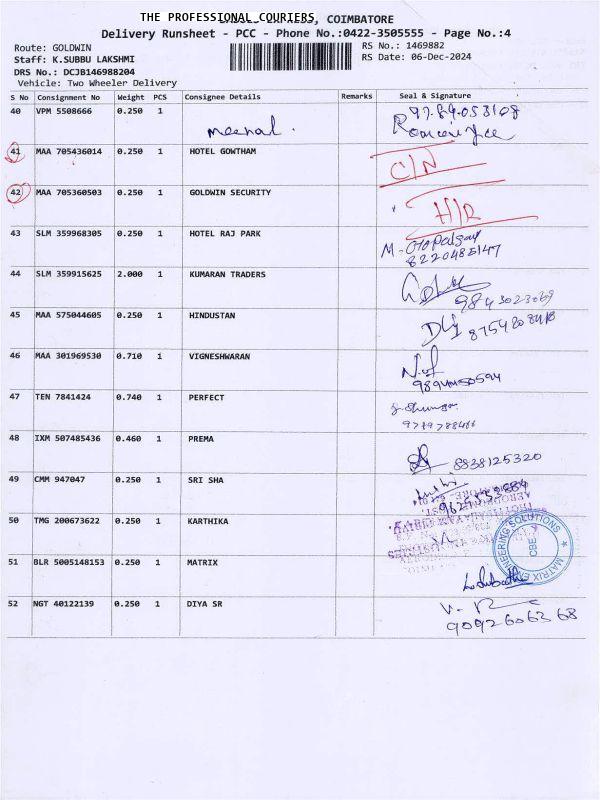 THE PROFESSIONAL COURIERS, COIMBATORE
Delivery Runsheet - PCC - Phone No.:0422-3505555 - Page No.:4
Route: GOLDWIN RS No.: 1469882
Staff: K.SUBBU LAKSHMI RS Date: 06-Dec-2024
DRS No.: DCJB146988204
Vehicle: Two Wheeler Delivery
S No Consignment No Weight PCS Consignee Details Remarks Seal & Signature
40 VPM 5508666 0.250 1 meenal.
41 MAA 705436014 0.250 1 HOTEL GOWTHAM C/N
42 MAA 705360503 0.250 1 GOLDWIN SECURITY H/R
43 SLM 359968305 0.250 1 HOTEL RAJ PARK M-Gopalsamy
8220485147
44 SLM 359915625 2.000 1 KUMARAN TRADERS 9843023069
45 MAA 575044605 0.250 1 HINDUSTAN
46 MAA 301969530 0.710 1 VIGNESHWARAN
47 TEN 7841424 0.740 1 PERFECT
48 IXM 507485436 0.460 1 PREMA 8838125320
49 CMM 947047 0.250 1 SRI SHA
50 TMG 200673622 0.250 1 KARTHIKA
51 BLR 5005148153 0.250 1 MATRIX MATRIX ENGINEERING SOLUTIONS CBE
52 NGT 40122139 0.250 1 DIYA SR 9092606368